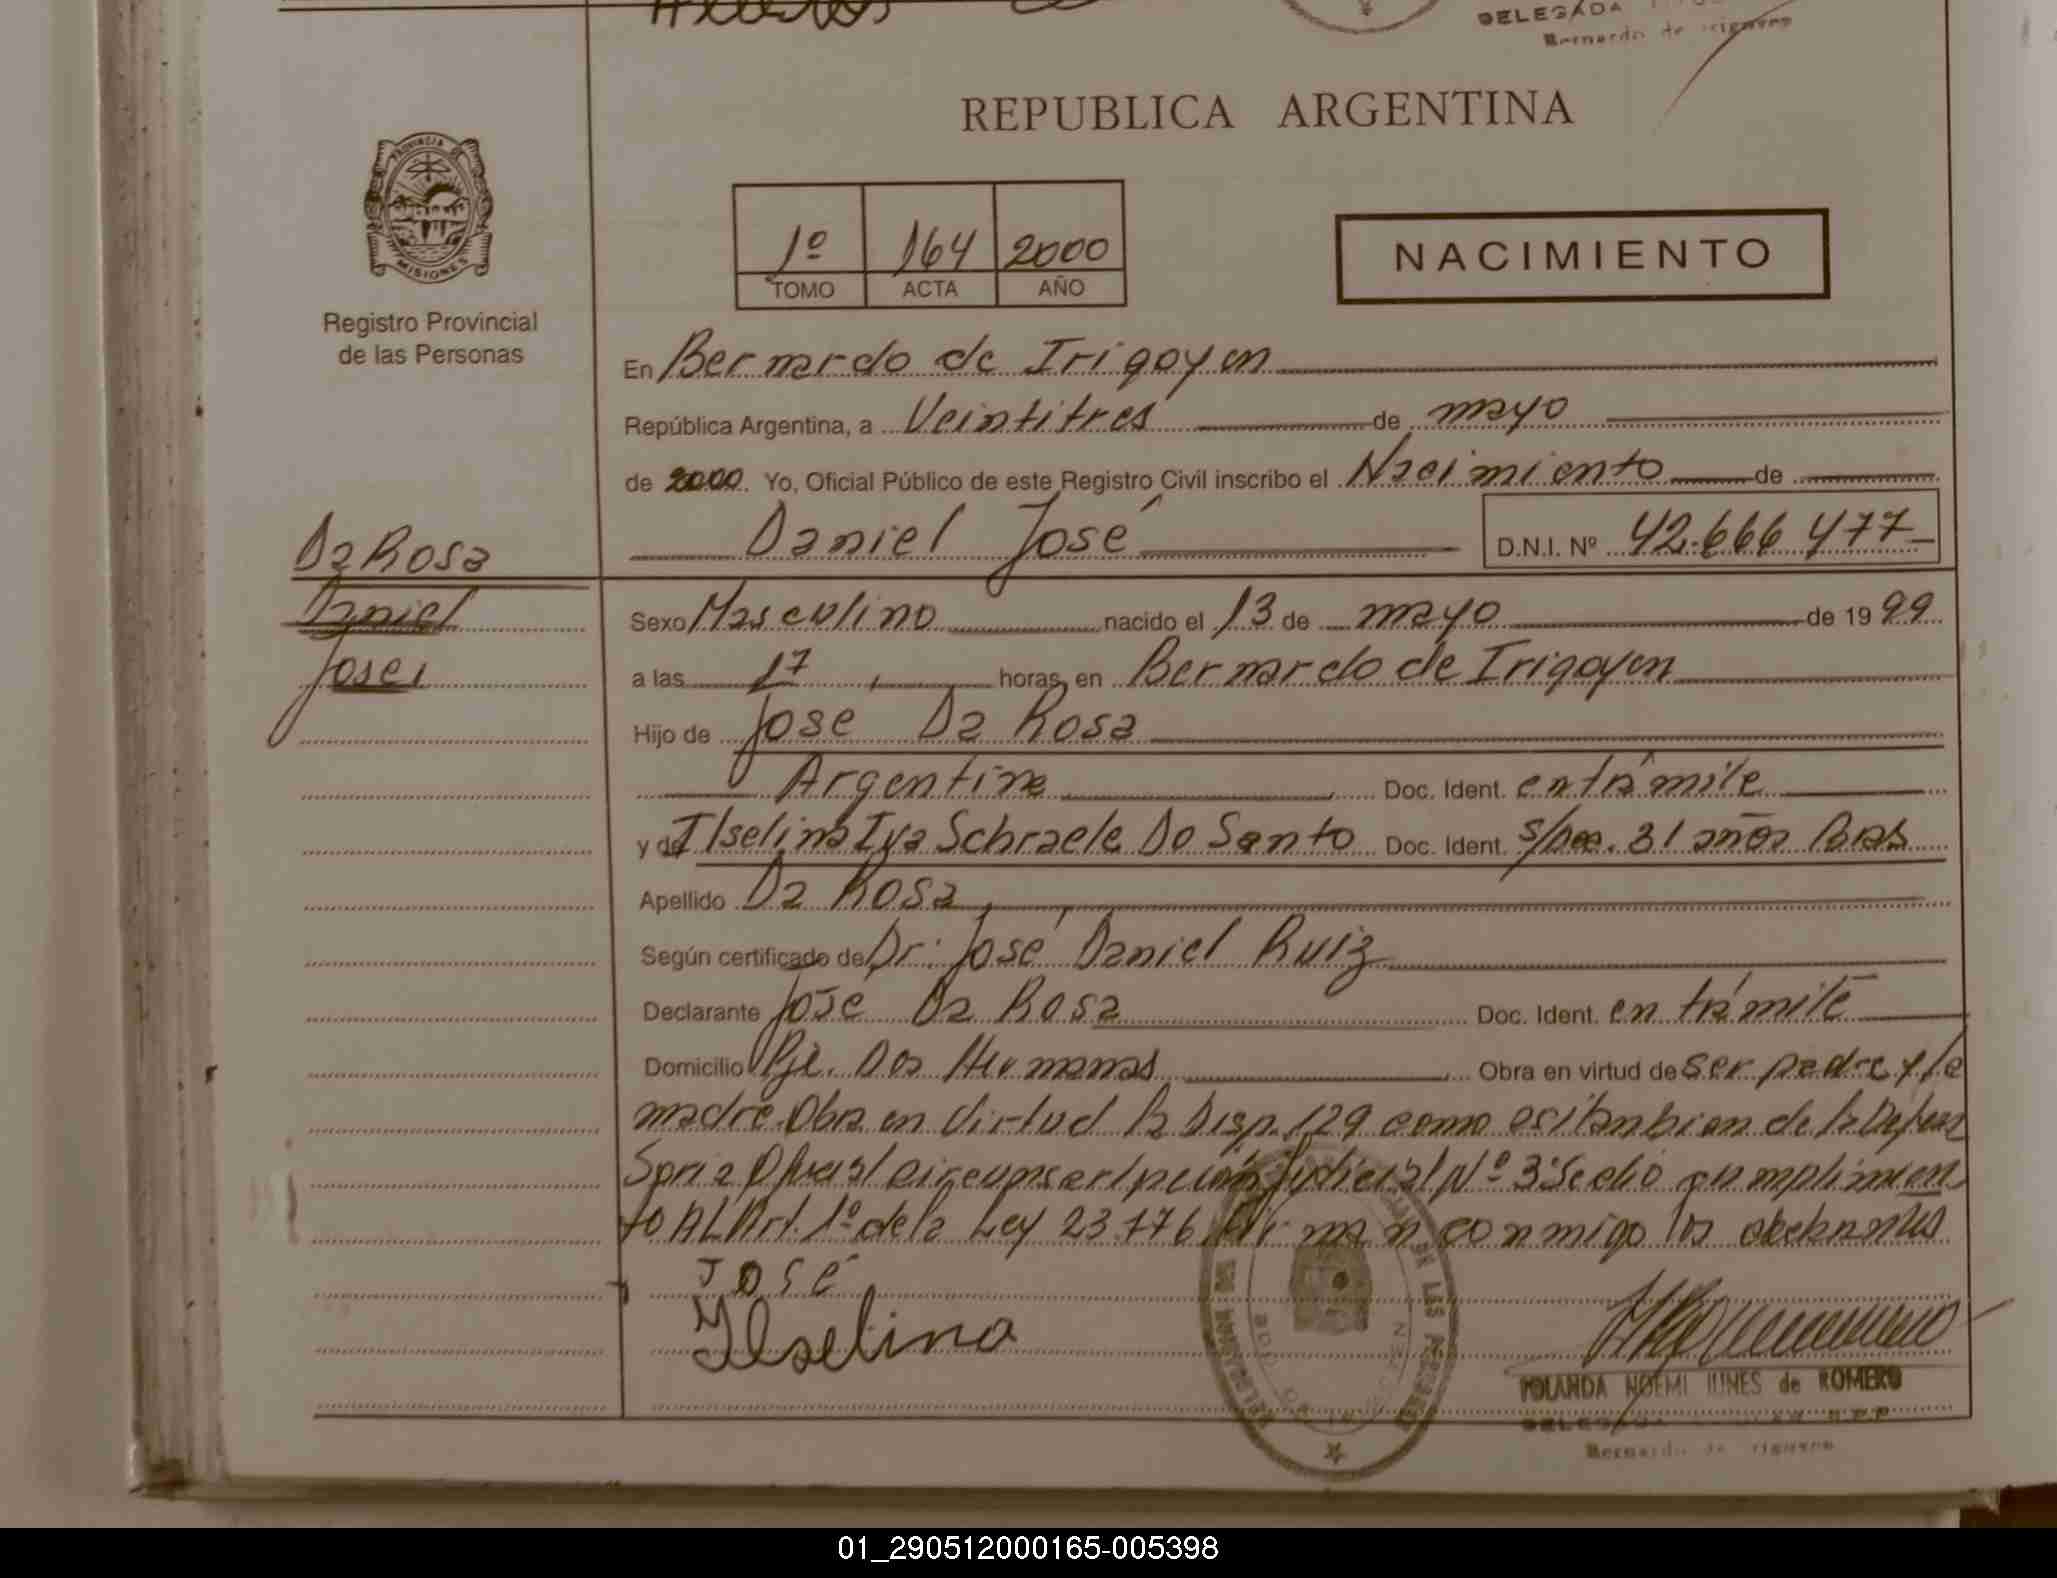 DELEGADA
Bernardo de Irigoyen
REPUBLICA ARGENTINA
PROVINCIA
MISIONES
Registro Provincial
de las Personas
1º 164 2000
TOMO ACTA AÑO
NACIMIENTO
En Bernardo de Irigoyen
República Argentina, a Veintitres de mayo
de 2000. Yo, Oficial Público de este Registro Civil inscribo el Nacimiento de
Daniel José D.N.I. Nº 42.666 477
Da Rosa
Daniel
José
Sexo Masculino nacido el 13 de mayo de 1999
a las 17 horas, en Bernardo de Irigoyen
Hijo de José Da Rosa
Argentina Doc. Ident. en trámite
y de Ilselina Iva Schraele Do Santo Doc. Ident. s/Doc. 31 años Bras
Apellido Da Rosa
Según certificado de Dr: José Daniel Ruiz
Declarante José Da Rosa Doc. Ident. en trámite
Domicilio Pje. Dos Hermanas Obra en virtud de ser padre y la
madre. Obra en virtud la Disp. 129 como asi tambien de la Defen
Soria Oficial circunscripción Judicial Nº 3 Se dió cumplimien
to AL Art. 1º de la Ley 23.776 Firman conmigo los
José
Ilselina
YOLANDA NOEMI de ROMERO
DELEGADA
Bernardo de Irigoyen
01_290512000165-005398